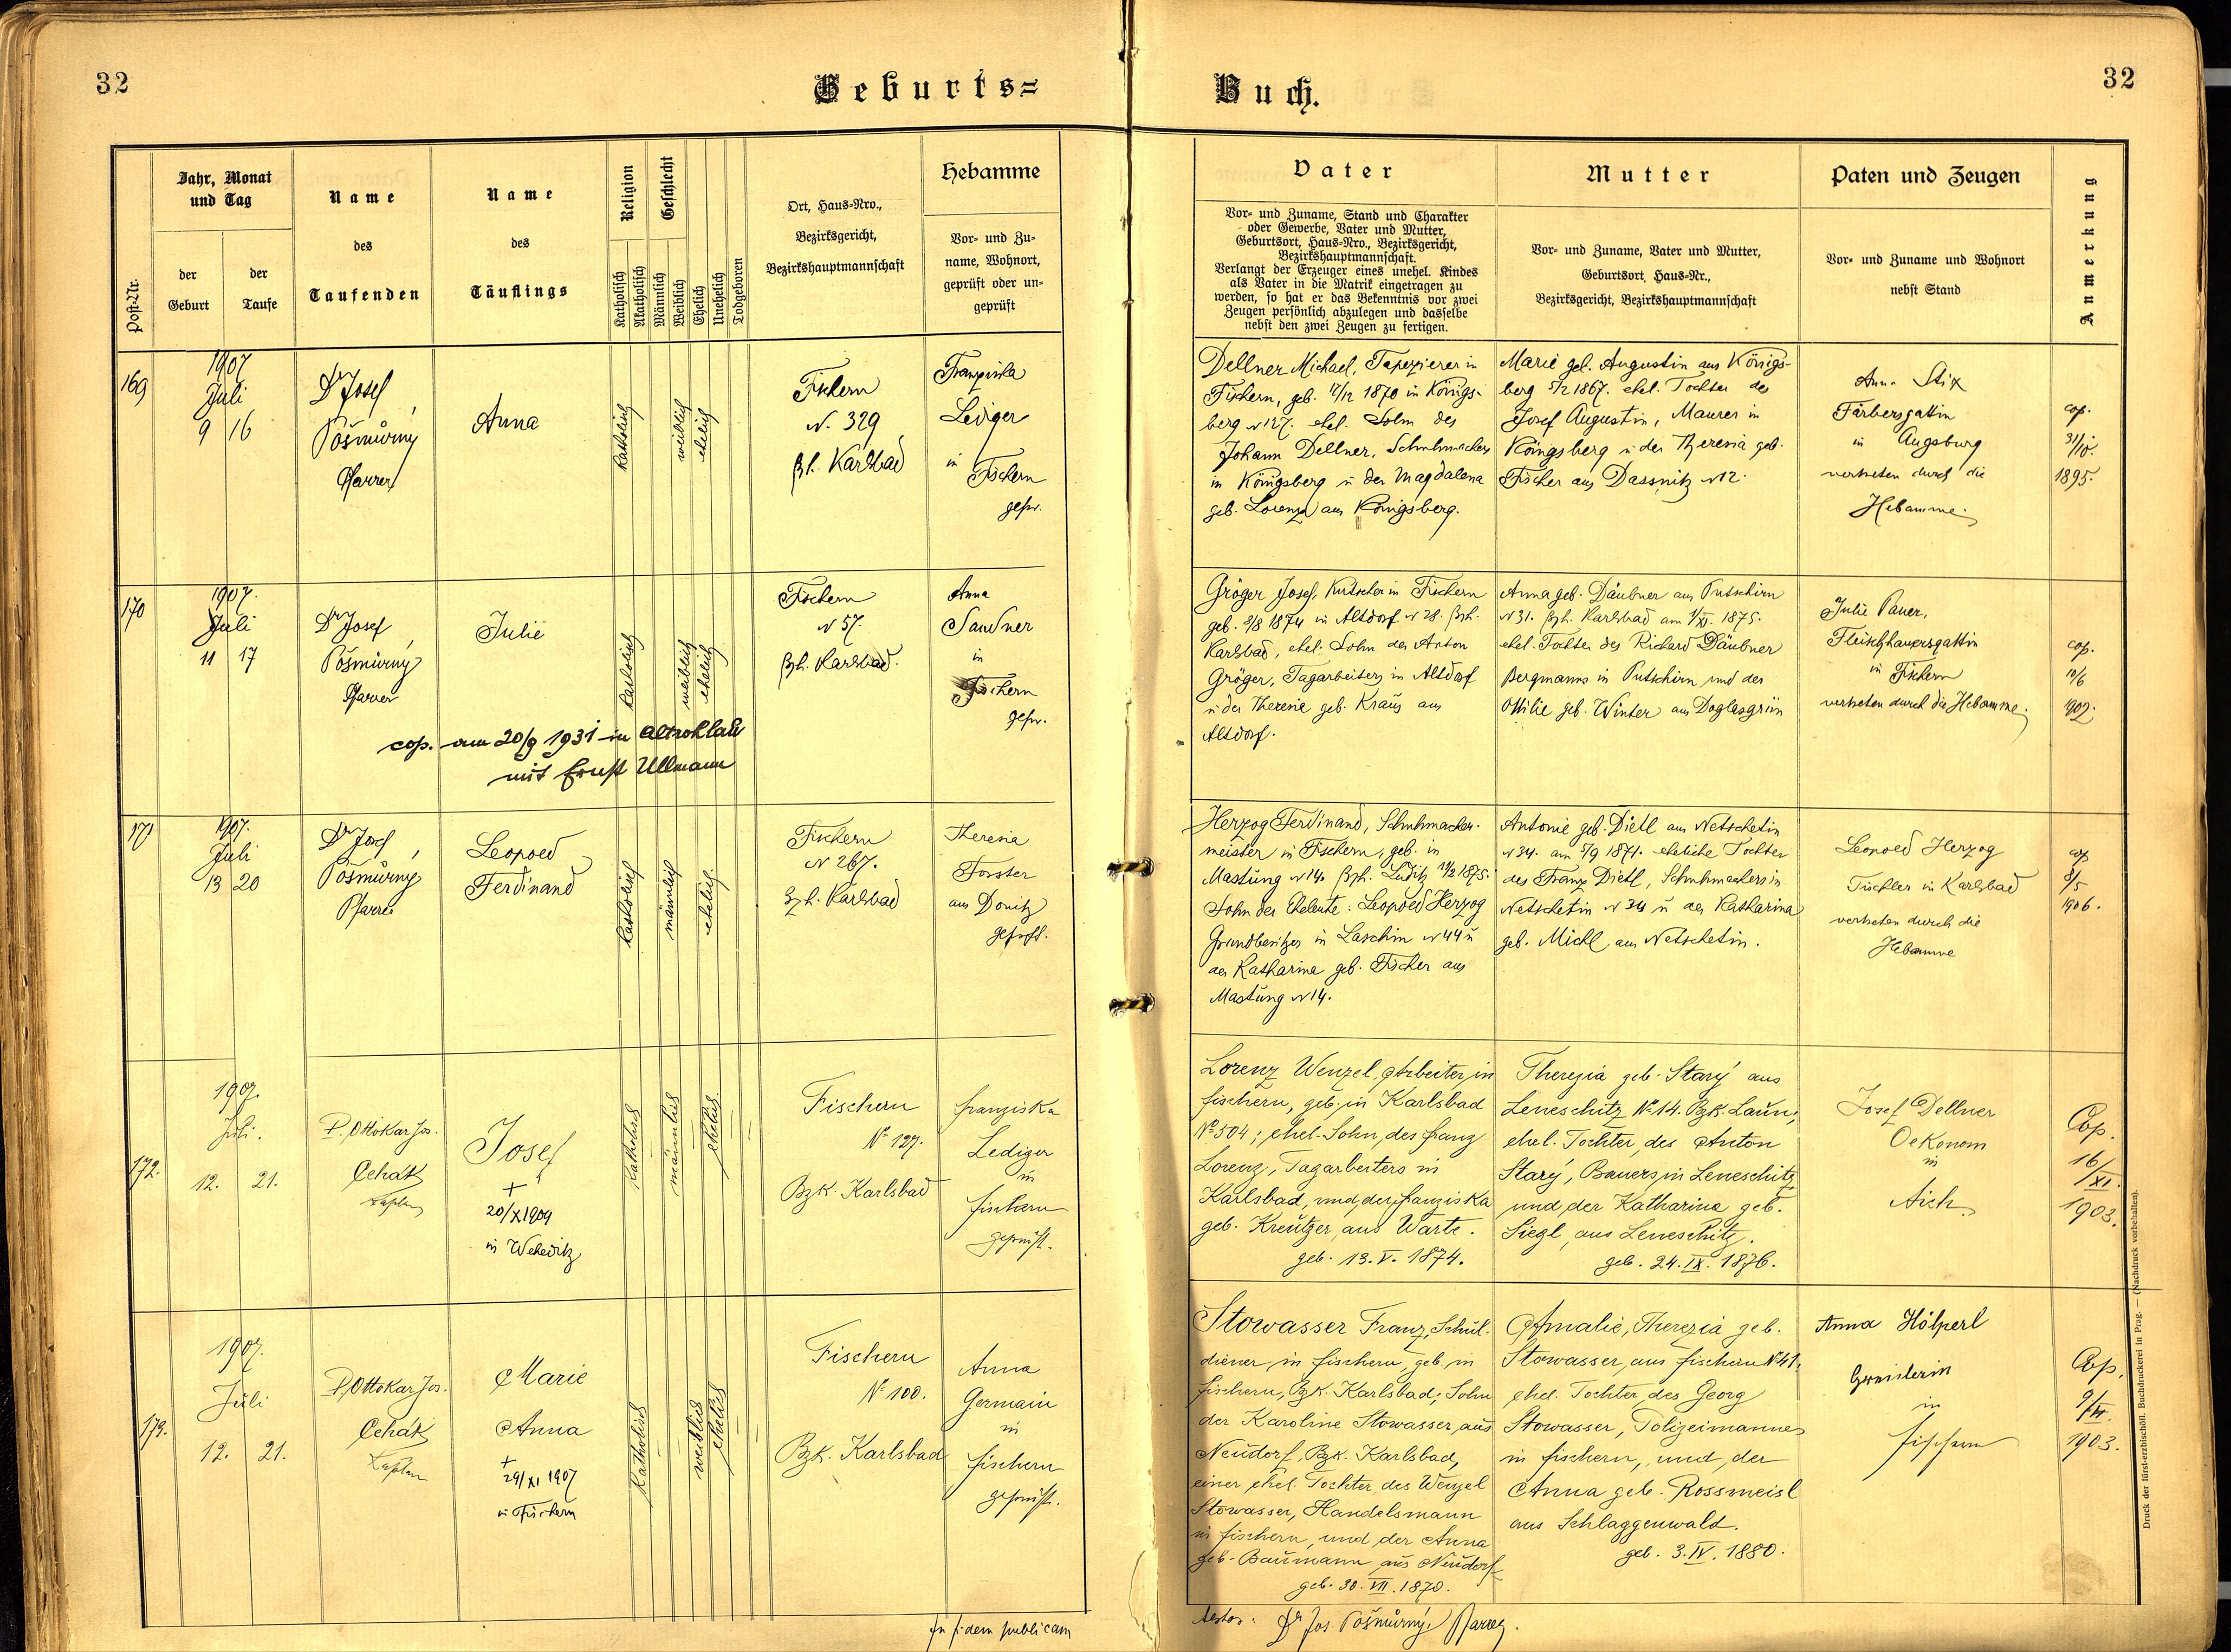 32
Geburts=
Buch.
32
Post-Nr.
Jahr, Monat
und Tag
der
Geburt
der
Taufe
Name
des
Taufenden
Name
des
Täuflings
Religion
Katholisch
Akatholisch
Geschlecht
Männlich
Weiblich
Ehelich
Unehelich
Todgeboren
Ort, Haus-Nro.,
Bezirksgericht,
Bezirkshauptmannschaft
Hebamme
Vor- und Zu-
name, Wohnort,
geprüft oder un-
geprüft
Vater
Vor- und Zuname, Stand und Charakter
oder Gewerbe, Vater und Mutter,
Geburtsort, Haus-Nro., Bezirksgericht,
Bezirkshauptmannschaft.
Verlangt der Erzeuger eines unehel. Kindes
als Vater in die Matrik eingetragen zu
werden, so hat er das Bekenntnis vor zwei
Zeugen persönlich abzulegen und dasselbe
nebst den zwei Zeugen zu fertigen.
Mutter
Vor- und Zuname, Vater und Mutter,
Geburtsort, Haus-Nr.,
Bezirksgericht, Bezirkshauptmannschaft
Paten und Zeugen
Vor- und Zuname und Wohnort
nebst Stand
Anmerkung
169
1907
Juli
9 16
Dr Josef
Pošmůrný
Pfarrer
Anna
katholisch
weiblich
ehelich
Fischern
N. 329
Bzh. Karlsbad
Franziska
Lediger
in
Fischern
gepr.
Dellner Michael, Tapezierer in
Fischern, geb. 17/12 1870 in Königs-
berg N 127. ehel. Sohn des
Johann Dellner, Schuhmachers
in Königsberg u der Magdalena
geb. Lorenz aus Königsberg.
Marie geb. Augustin aus Königs-
berg 5/2 1867. ehel. Tochter des
Josef Augustin, Maurer in
Königsberg u der Theresia geb.
Fischer aus Dassnitz N 12.
Anna Stix
Färbersgattin
in Augsburg
vertreten durch die
Hebamme.
cop.
31/10.
1895.
170
1907.
Juli
11 17
Dr Josef
Pošmůrný
Pfarrer
Julie
cop. am 20/9 1931 in Altrohlau
mit Ernst Ullmann
katholisch
weiblich
ehelich
Fischern
N 57.
Bzh. Karlsbad.
Anna
Sandner
in
Fischern
gepr.
Gröger Josef, Kutscher in Fischern
geb. 3/8 1874 in Altdorf N 28. Bzh.
Karlsbad, ehel. Sohn des Anton
Gröger, Tagarbeiters in Altdorf
u der Theresie geb. Kraus aus
Altdorf.
Anna geb. Däubner aus Putschirn
N 31. Bzh. Karlsbad am 1/XI. 1875.
ehel. Tochter des Richard Däubner
Bergmanns in Putschirn und der
Ottilie geb. Winter aus Doglasgrün
Julie Pauer,
Fleischhauersgattin
in Fischern
vertreten durch die Hebamme.
cop.
10/6
1902.
171
1907.
Juli
13 20
Dr Josef
Pošmůrný
Pfarrer
Leopold
Ferdinand
katholisch
männlich
ehelich
Fischern
N 267.
Bzh. Karlsbad
Theresia
Forster
aus Donitz
geprft.
Herzog Ferdinand, Schuhmacher-
meister in Fischern, geb. in
Mastung N 14. Bzh. Luditz 14/2 1875.
Sohn der Eheleute: Leopold Herzog
Grundbesitzer in Laschin N 44 u
der Katharina geb. Fischer aus
Mastung N 14.
Antonie geb. Dietl aus Netschetin
N 34. am 5/9 1871. eheliche Tochter
des Franz Dietl, Schuhmachers in
Netschetin N 34 u der Katharina
geb. Michl aus Netschetin.
Leopold Herzog
Tischler in Karlsbad
vertreten durch die
Hebamme
cop
8/5
1906.
172.
1907.
Juli.
12. 21.
P. Ottokar Jos.
Čehák
Kaplan
Josef
+
20/X 1909
in Weheditz
katholisch
männlich
ehelich
Fischern
No 127.
Bzk. Karlsbad
Franziska
Lediger
in
Fischern
geprüft.
Lorenz Wenzel, Arbeiter, in
Fischern, geb. in Karlsbad
No 504; ehel. Sohn, des Franz
Lorenz, Tagarbeiters in
Karlsbad, und der Franziska
geb. Kreutzer, aus Warte.
geb. 13. V. 1874.
Therezia geb. Starý aus
Leneschitz No 14. Bzk. Laun,
ehel. Tochter, des Anton
Starý, Bauers in Leneschitz
und der Katharina geb.
Siegl, aus Leneschitz.
geb. 24. IX. 1876.
Josef Dellner
Oekonom
in
Aich
Cop.
16/XI.
1903.
173.
1907.
Juli
12. 21.
P. Ottokar Jos.
Čehák
Kaplan
Marie
Anna
+
29/XI 1907
in Fischern
katholisch
weiblich
ehelich
Fischern
No 100.
Bzk. Karlsbad
Anna
Germain
in
Fischern
geprüft.
Stowasser Franz, Schul-
diener, in Fischern, geb. in
Fischern, Bzk. Karlsbad; Sohn
der Karoline Stowasser, aus
Neudorf, Bzk. Karlsbad,
einer ehel. Tochter des Wenzel
Stowasser, Handelsmann
in Fischern, und der Anna
geb. Baumann aus Neudorf
geb. 30. VII. 1870.
Amalie, Therezia geb.
Stowasser, aus Fischern No 41,
ehel. Tochter, des Georg
Stowasser, Polizeimannes
in Fischern, und der
Anna geb. Rossmeisl
aus Schlaggenwald.
geb. 3. IV. 1880.
Anna Hölperl
in
Fischern
Cop.
1903.
In fidem publicam
Dr Jos. Pošmůrný, Pfarrer.
Druck der fürst-erzbischöfl. Buchdruckerei in Prag. — (Nachdruck vorbehalten).